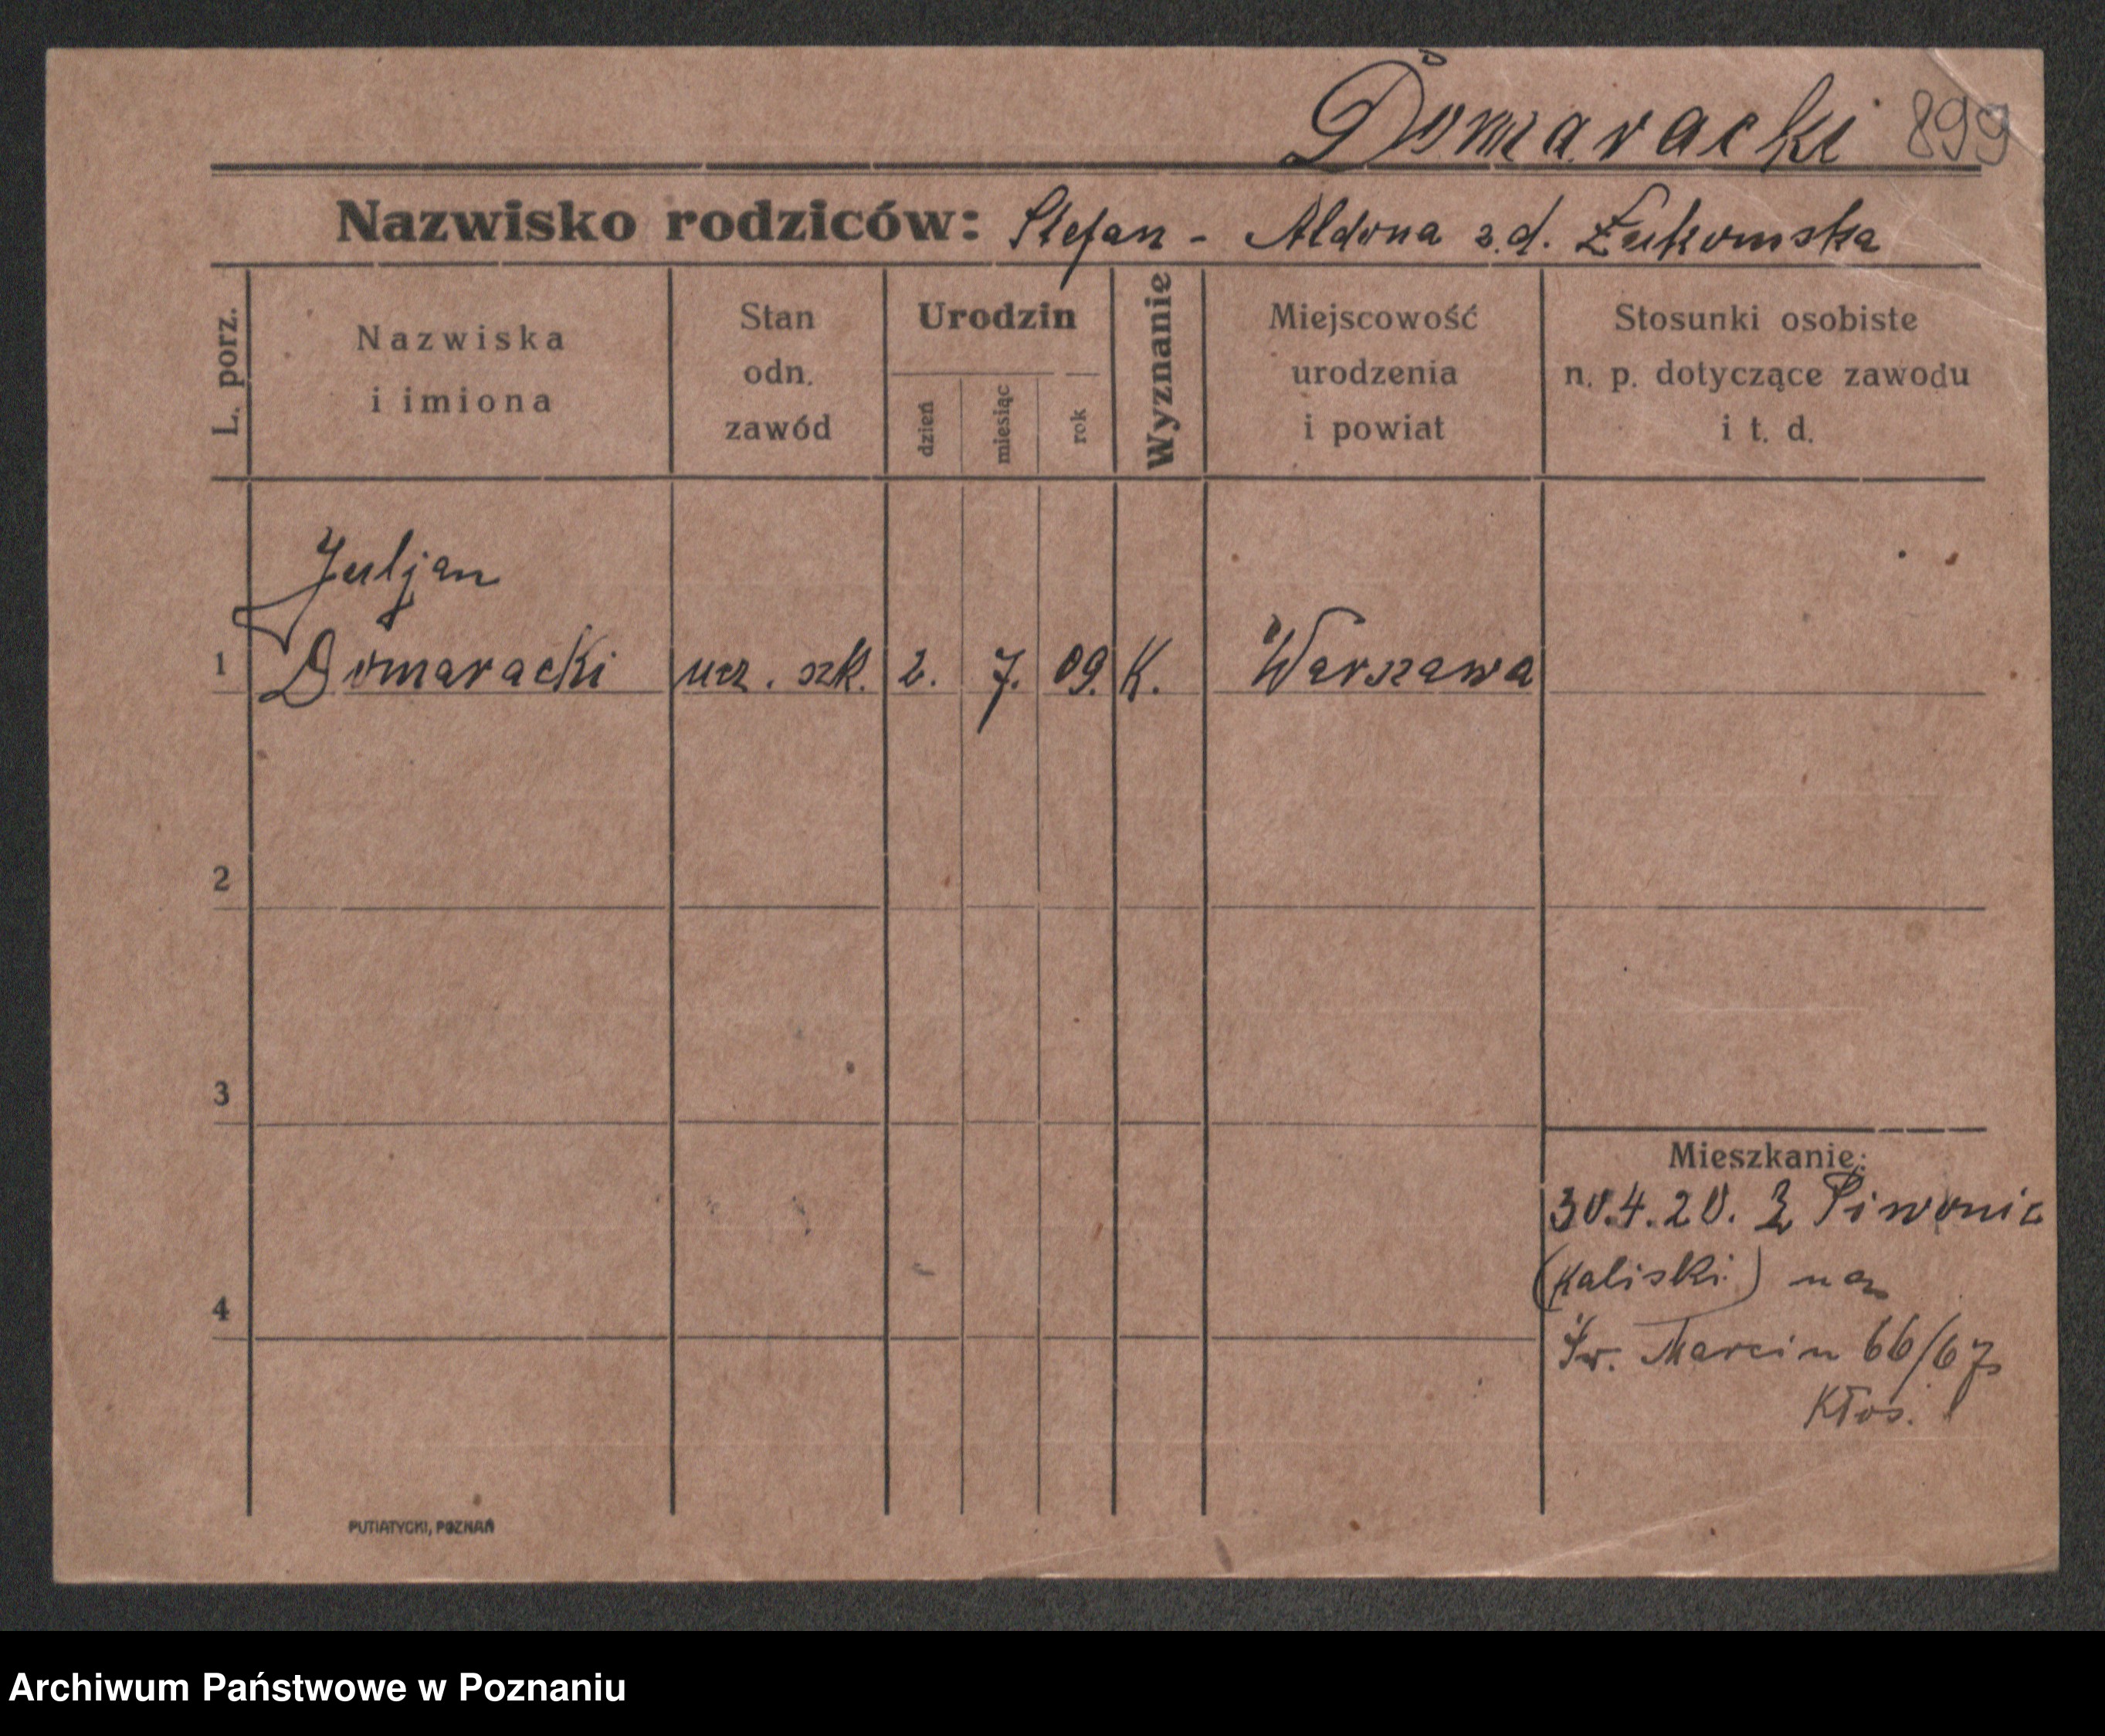 Domaracki 899
Nazwisko rodziców: Stefan - Aldona z.d. Żukomska
L. porz.
Nazwiska
i imiona
Stan
odn.
zawód
Urodzin
dzień
miesiąc
rok
Wyznanie
Miejscowość
urodzenia
i powiat
Stosunki osobiste
n. p. dotyczące zawodu
i t. d.
Juljan
1 Domaracki ucz. szk. 2. 7. 09. K. Warszawa
2
3
Mieszkanie:
30.4.20. Z Piwonic
(Kaliski)
4
Św. Marcin 66/67
Kłos.
PUTIATYCKI, POZNAŃ
Archiwum Państwowe w Poznaniu